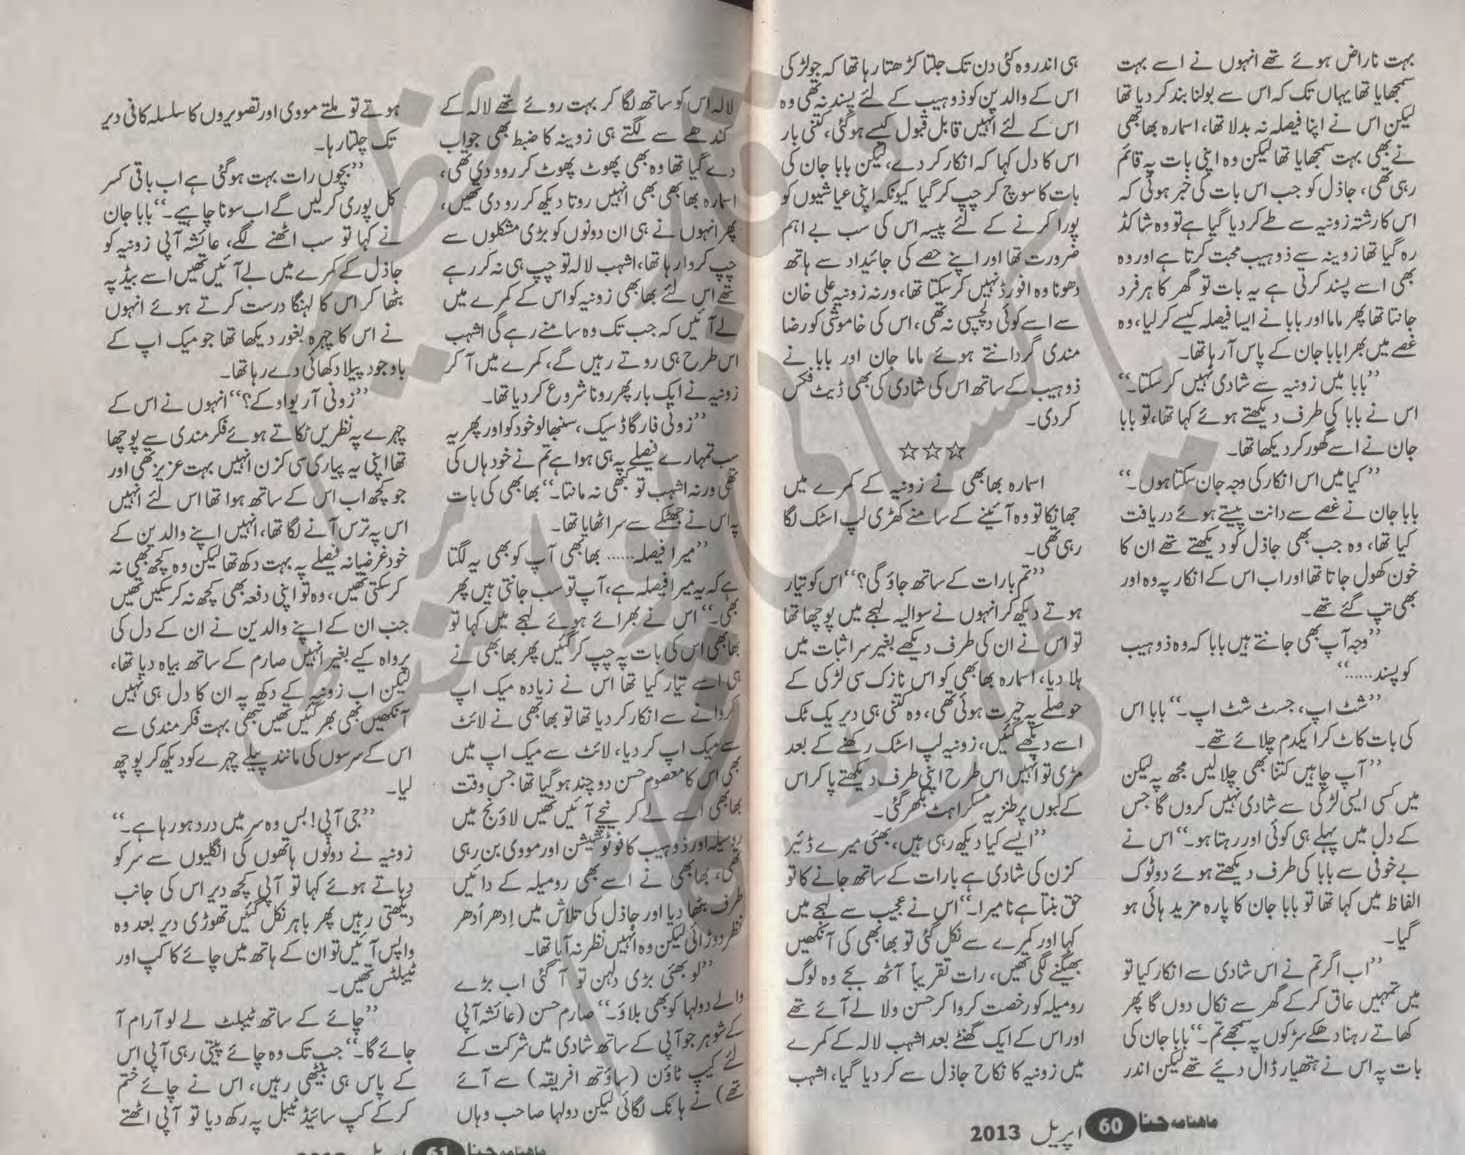 بہت ناراض ہوئے تھے انہوں نے اسے بہت
سمجھایا تھا یہاں تک کہ اس سے بولنا بند کر دیا تھا
لیکن اس نے اپنا فیصلہ نہ بدلا تھا، اسمارہ بھابھی
نے بھی بہت سمجھایا تھا لیکن وہ اپنی بات پہ قائم
رہی تھی، جاذل کو جب اس بات کی خبر ہوئی کہ
اس کا رشتہ زونیہ سے طے کر دیا گیا ہے تو وہ شاکڈ
رہ گیا تھا زوینہ سے ذوہیب محبت کرتا ہے اور وہ
بھی اسے پسند کرتی ہے یہ بات تو گھر کا ہر فرد
جانتا تھا پھر ماما اور بابا نے ایسا فیصلہ کیسے کر لیا، وہ
غصے میں بھرا بابا جان کے پاس آ رہا تھا۔
”بابا میں زونیہ سے شادی نہیں کر سکتا۔“
اس نے بابا کی طرف دیکھتے ہوئے کہا تھا، تو بابا
جان نے اسے گھور کر دیکھا تھا۔
”کیا میں اس انکار کی وجہ جان سکتا ہوں۔“
بابا جان نے غصے سے دانت پیستے ہوئے دریافت
کیا تھا، وہ جب بھی جاذل کو دیکھتے تھے ان کا
خون کھول جاتا تھا اور اب اس کے انکار پہ وہ اور
بھی تپ گئے تھے۔
”وجہ آپ بھی جانتے ہیں بابا کہ وہ ذوہیب
کو پسند......“
”شٹ اپ، جسٹ شٹ اپ۔“ بابا اس
کی بات کاٹ کر ایکدم چلائے تھے۔
”آپ چاہیں کتنا بھی چلا لیں مجھ پہ لیکن
میں کسی ایسی لڑکی سے شادی نہیں کروں گا جس
کے دل میں پہلے ہی کوئی اور رہتا ہو۔“ اس نے
بے خوفی سے بابا کی طرف دیکھتے ہوئے دو ٹوک
الفاظ میں کہا تھا تو بابا جان کا پارہ مزید ہائی ہو
گیا۔
”اب اگر تم نے اس شادی سے انکار کیا تو
میں تمہیں عاق کر کے گھر سے نکال دوں گا پھر
کھاتے رہنا دھکے سڑکوں پہ سمجھے تم۔“ بابا جان کی
بات پہ اس نے ہتھیار ڈال دیئے تھے لیکن اندر
ہی اندر وہ کئی دن تک جلتا کڑھتا رہا تھا کہ جو لڑکی
اس کے والدین کو ذوہیب کے لئے پسند نہ تھی وہ
اس کے لئے انہیں قابل قبول کیسے ہو گئی، کتنی بار
اس کا دل کہا کہ انکار کر دے، لیکن بابا جان کی
بات کا سوچ کر چپ کر گیا کیونکہ اپنی عیاشیوں کو
پورا کرنے کے لئے پیسہ اس کی سب سے اہم
ضرورت تھا اور اپنے حصے کی جائیداد سے ہاتھ
دھونا وہ افورڈ نہیں کر سکتا تھا، ورنہ زونیہ علی خان
سے اسے کوئی دلچسپی نہ تھی، اس کی خاموشی کو رضا
مندی گردانتے ہوئے ماما جان اور بابا نے
ذوہیب کے ساتھ اس کی شادی کی بھی ڈیٹ فکس
کر دی۔
☆☆☆
اسمارہ بھابھی نے زونیہ کے کمرے میں
جھانکا تو وہ آئینے کے سامنے کھڑی لپ اسٹک لگا
رہی تھی۔
”تم بارات کے ساتھ جاؤ گی؟“ اس کو تیار
ہوتے دیکھ کر انہوں نے سوالیہ لہجے میں پوچھا تھا
تو اس نے ان کی طرف دیکھے بغیر سر اثبات میں
ہلا دیا، اسمارہ بھابھی کو اس نازک سی لڑکی کے
حوصلے پہ حیرت ہوئی تھی، وہ کتنی ہی دیر یک ٹک
اسے دیکھے گئیں، زونیہ لپ اسٹک رکھنے کے بعد
مڑی تو انہیں اس طرح اپنی طرف دیکھتے پا کر اس
کے لبوں پر طنزیہ مسکراہٹ بکھر گئی۔
”ایسے کیا دیکھ رہی ہیں، بھئی میرے ڈئیر
کزن کی شادی ہے بارات کے ساتھ جانے کا تو
حق بنتا ہے نا میرا۔“ اس نے عجیب سے لہجے میں
کہا اور کمرے سے نکل گئی تو بھابھی کی آنکھیں
بھیگنے لگی تھیں، رات تقریباً آٹھ بجے وہ لوگ
رومیلہ کو رخصت کروا کر حسن ولا لے آئے تھے
اور اس کے ایک گھنٹے بعد اشہب لالہ کے کمرے
میں زونیہ کا نکاح جاذل سے کر دیا گیا، اشہب
ماہنامہ حنا 60 اپریل 2013
لالہ اس کو ساتھ لگا کر بہت روئے تھے لالہ کے
کندھے سے لگتے ہی زوینہ کا ضبط بھی جواب
دے گیا تھا وہ بھی پھوٹ پھوٹ کر رو دی تھی،
اسمارہ بھابھی بھی انہیں روتا دیکھ کر رو دی تھیں،
پھر انہوں نے ہی ان دونوں کو بڑی مشکلوں سے
چپ کروا رہا تھا، اشہب لالہ تو چپ ہی نہ کر رہے
تھے اس لئے بھابھی زونیہ کو اس کے کمرے میں
لے آئیں کہ جب تک وہ سامنے رہے گی اشہب
اس طرح ہی روتے رہیں گے، کمرے میں آ کر
زونیہ نے ایک بار پھر رونا شروع کر دیا تھا۔
”زونی فار گاڈ سیک، سنبھالو خود کو اور پھر یہ
سب تمہارے فیصلے پہ ہی ہوا ہے تم نے خود ہاں کی
تھی ورنہ اشہب تو کبھی نہ مانتا۔“ بھابھی کی بات
پہ اس نے جھٹکے سے سر اٹھایا تھا۔
”میرا فیصلہ...... بھابھی آپ کو بھی یہ لگتا
ہے کہ یہ میرا فیصلہ ہے، آپ تو سب جانتی ہیں پھر
بھی۔“ اس نے بھرائے ہوئے لہجے میں کہا تو
بھابھی اس کی بات پہ چپ کر گئیں پھر بھابھی نے
ہی اسے تیار کیا تھا اس نے زیادہ میک اپ
کروانے سے انکار کر دیا تھا تو بھابھی نے لائٹ
سے میک اپ کر دیا، لائٹ سے میک اپ میں
بھی اس کا معصوم حسن دو چند ہو گیا تھا جس وقت
بھابھی اسے لے کر نیچے آئیں تھیں لاؤنج میں
رومیلہ اور ذوہیب کا فوٹو سیشن اور مووی بن رہی
تھی، بھابھی نے اسے بھی رومیلہ کے دائیں
طرف بٹھا دیا اور جاذل کی تلاش میں اِدھر اُدھر
نظر دوڑائی لیکن وہ انہیں نظر نہ آیا تھا۔
”لو بھئی بڑی دلہن تو آ گئی اب بڑے
والے دولہا کو بھی بلاؤ۔“ صارم حسن (عائشہ آپی
کے شوہر جو آپی کے ساتھ شادی میں شرکت کے
لئے کیپ ٹاؤن (ساؤتھ افریقہ) سے آئے
تھے) نے ہانک لگائی لیکن دولہا صاحب وہاں
ہوتے تو ملتے مووی اور تصویروں کا سلسلہ کافی دیر
تک چلتا رہا۔
”بچوں رات بہت ہو گئی ہے اب باقی کسر
کل پوری کر لیں گے اب سونا چاہیے۔“ بابا جان
نے کہا تو سب اٹھنے لگے، عائشہ آپی زونیہ کو
جاذل کے کمرے میں لے آئیں تھیں اسے بیڈ پہ
بٹھا کر اس کا لہنگا درست کرتے ہوئے انہوں
نے اس کا چہرہ بغور دیکھا تھا جو میک اپ کے
باوجود پیلا دکھائی دے رہا تھا۔
”زونی آر یو اوکے؟“ انہوں نے اس کے
چہرے پہ نظریں ٹکاتے ہوئے فکر مندی سے پوچھا
تھا اپنی یہ پیاری سی کزن انہیں بہت عزیز تھی اور
جو کچھ اب اس کے ساتھ ہوا تھا اس لئے انہیں
اس پہ ترس آنے لگا تھا، انہیں اپنے والدین کے
خود غرضیانہ فیصلے پہ بہت دکھ تھا لیکن وہ کچھ بھی نہ
کر سکتی تھیں، وہ تو اپنی دفعہ بھی کچھ نہ کر سکیں تھیں
جب ان کے اپنے والدین نے ان کے دل کی
پرواہ کیے بغیر انہیں صارم کے ساتھ بیاہ دیا تھا،
لیکن اب زونیہ کے دکھ پہ ان کا دل ہی نہیں
آنکھیں بھی بھر گئیں تھیں تبھی بہت فکر مندی سے
اس کے سرسوں کی مانند پیلے چہرے کو دیکھ کر پوچھ
لیا۔
”جی آپی! بس وہ سر میں درد ہو رہا ہے۔“
زونیہ نے دونوں ہاتھوں کی انگلیوں سے سر کو
دباتے ہوئے کہا تو آپی کچھ دیر اس کی جانب
دیکھتی رہیں پھر باہر نکل گئیں تھوڑی دیر بعد وہ
واپس آئیں تو ان کے ہاتھ میں چائے کا کپ اور
ٹیبلٹس تھیں۔
”چائے کے ساتھ ٹیبلٹ لے لو آرام آ
جائے گا۔“ جب تک وہ چائے پیتی رہی آپی اس
کے پاس ہی بیٹھی رہیں، اس نے چائے ختم
کر کے کپ سائیڈ ٹیبل پہ رکھ دیا تو آپی اٹھتے
ماہنامہ حنا 61 اپریل 2013